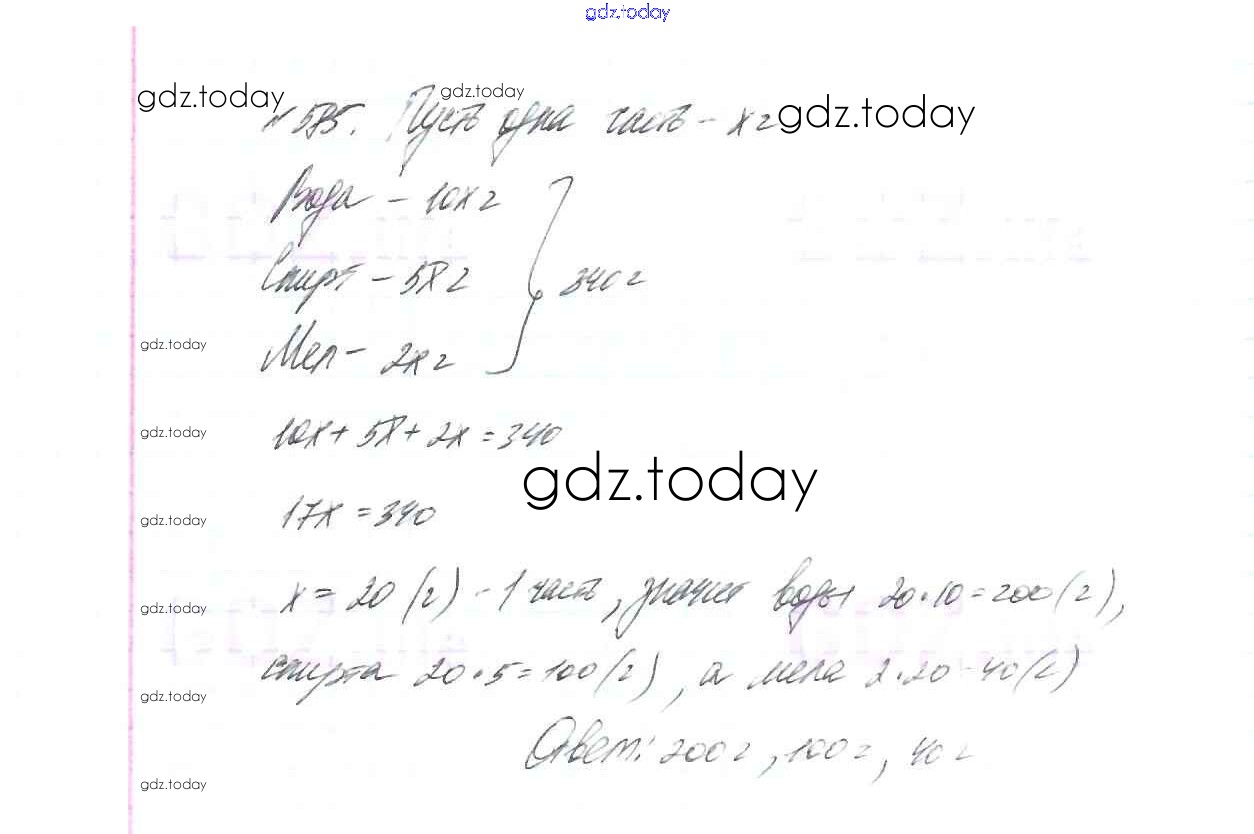 gdz.today
gdz.today
gdz.today
№ 585. Пусть одна часть – x г
gdz.today
Вода – 10x г
Спирт – 5x г
340 г
gdz.today
Мел – 2x г
gdz.today
10x + 5x + 2x = 340
gdz.today
gdz.today
17x = 340
gdz.today
x = 20 (г) – 1 часть, значит воды 20 · 10 = 200 (г),
спирта 20 · 5 = 100 (г), а мела 2 · 20 = 40 (г)
gdz.today
Ответ: 200 г, 100 г, 40 г
gdz.today